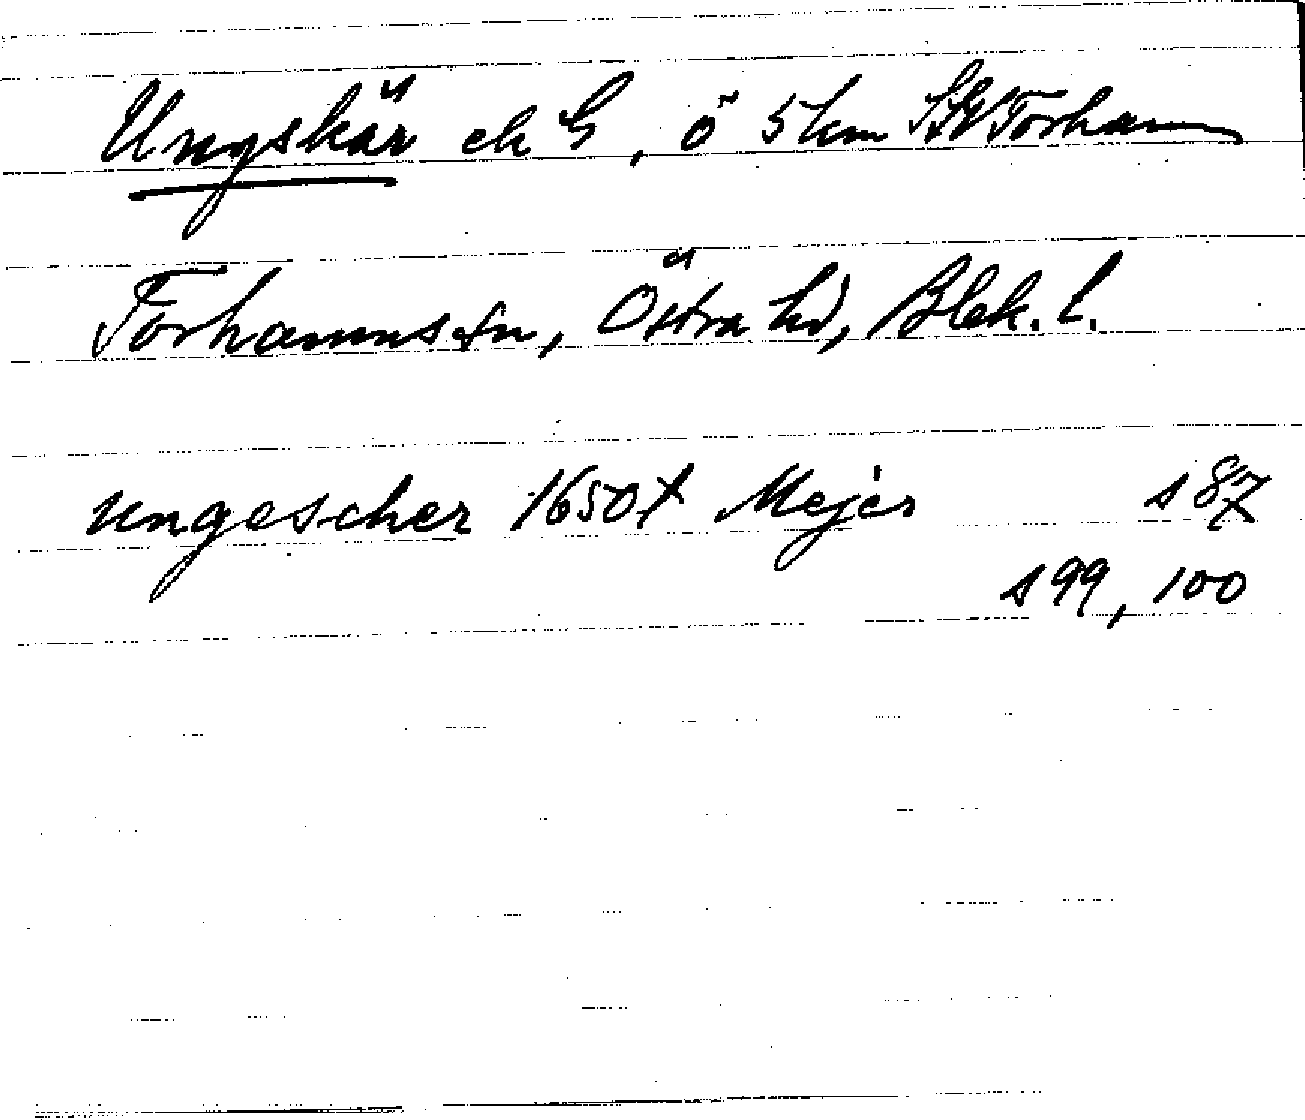 Ungskär ek G, ö 5 km SSV Torhamn
Torhamns sn, Östra hd, Blek. l.
ungescher 1650t Mejer s 87
s 99, 100